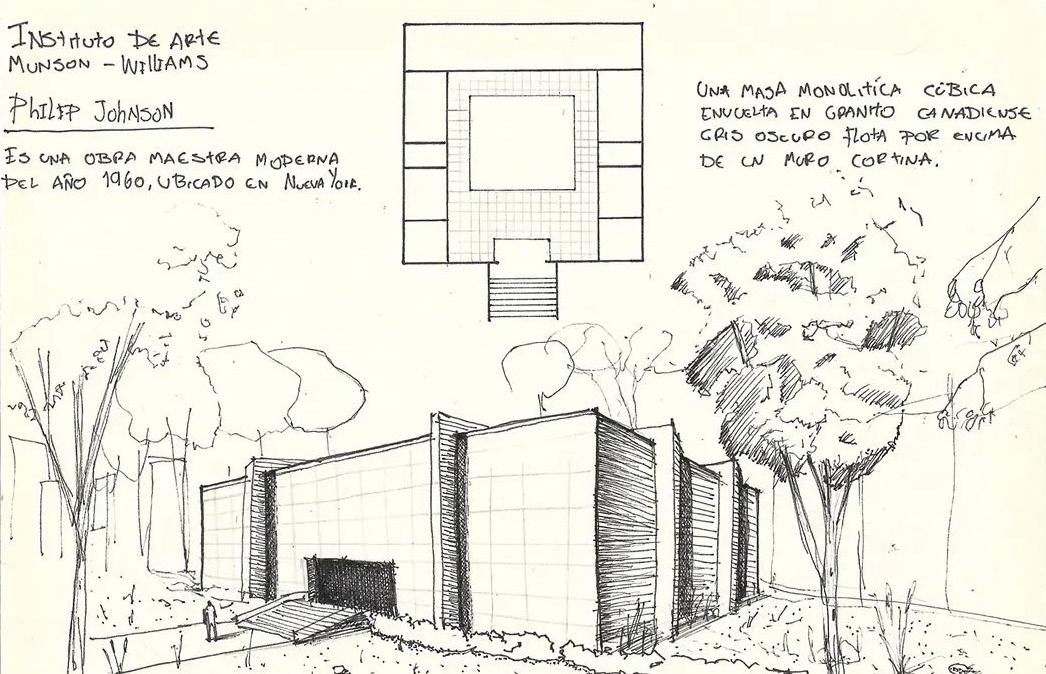 INSTITUTO DE ARTE
MUNSON - WILLIAMS
PHILIP JOHNSON
ES UNA OBRA MAESTRA MODERNA
DEL AÑO 1960, UBICADO EN NUEVA YORK.
UNA MASA MONOLITÍCA CÚBICA
ENVUELTA EN GRANITO CANADIENSE
GRIS OSCURO FLOTA POR ENCIMA
DE UN MURO CORTINA.